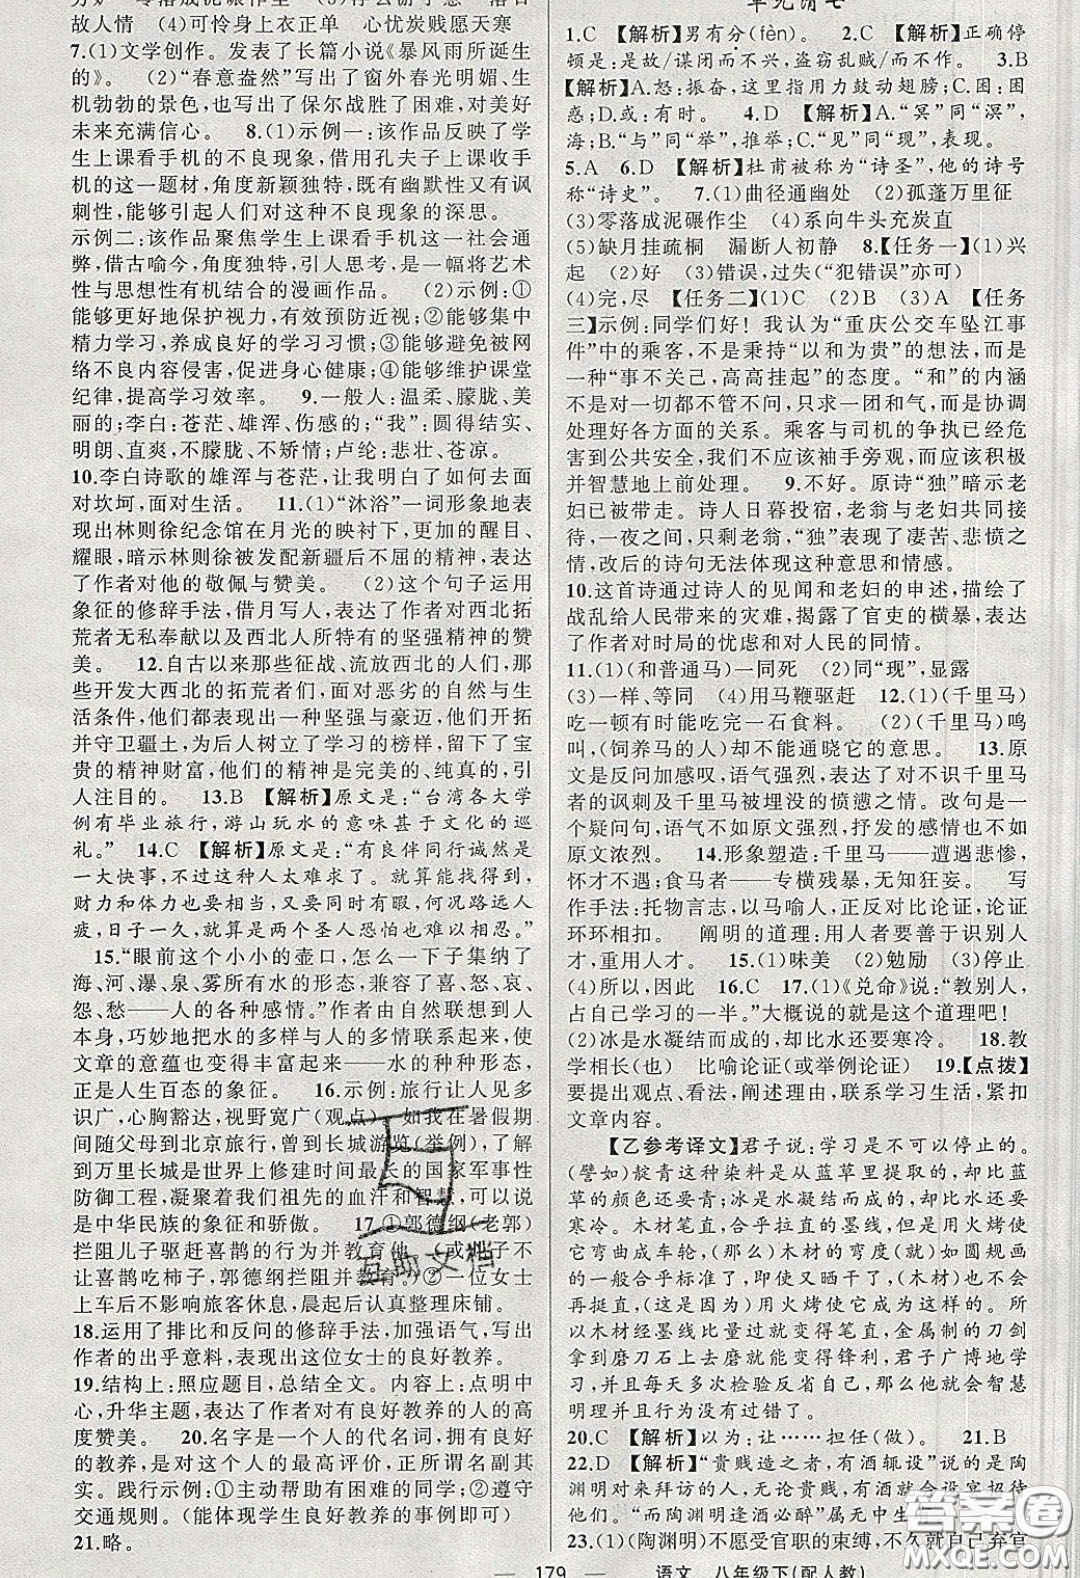 故人情　(4)可怜身上衣正单　心忧炭贱愿天寒
7.(1)文学创作。发表了长篇小说《暴风雨所诞生
的》。　(2)“春意盎然”写出了窗外春光明媚、生
机勃勃的景色，也暗示保尔战胜了困难，对美好
未来充满信心。　8.(1)示例一：该作品反映了学
生上课看手机的不良现象，借用孔夫子上课收手
机的这一题材，角度新颖独特，既有幽默性又有讽
刺性，能够引起人们对这种不良现象的深思。
示例二：该作品聚焦学生上课看手机这一社会通
弊，借古喻今，角度独特，引人思考，是一幅将艺术
性与思想性有机结合的漫画作品。　(2)示例：①
能够更好地保护视力，有效预防近视；②能够集中
精力学习，养成良好的学习习惯；③能够避免被网
络不良内容侵害，促进身心健康；④能够维护课堂
纪律，提高学习效率。　9.一般人：温柔、朦胧、美
丽的；李白：苍茫、雄浑、伤感的；“我”：圆得结实、
明朗、直爽、不朦胧、不矫情；卢纶：悲壮、苍凉。
10.李白诗歌的雄浑与苍茫，让我明白了如何去面
对坎坷，面对生活。　11.(1)“沐浴”一词形象地表
现出林则徐纪念馆在月光的映衬下，更加的醒目、
耀眼，暗示林则徐被发配新疆后不屈的精神，表达
了作者对他的敬佩与赞美。　(2)这个句子运用
象征的修辞手法，借月写人，表达了作者对西北拓
荒者无私奉献以及西北人所特有的坚强精神的赞
美。　12.自古以来那些征战、流放西北的人们，那
些开发大西北的拓荒者们，面对恶劣的自然与生
活条件，他们都表现出一种坚强与豪迈，他们开拓
并守卫疆土，为后人树立了学习的榜样，留下了宝
贵的精神财富，他们的精神是完美的、纯真的，引
人注目的。　13.B　【解析】原文是：“台湾各大学
例有毕业旅行，游山玩水的意味甚于文化的巡
礼。”　14.C　【解析】原文是：“有良伴同行诚然是
一大快事，不过这种人太难求了。就算能找得到，
财力和体力也要相当，又要同时有暇，何况路远人
疲，日子一久，就算是两个圣人恐怕也难以相忍。”
15.“眼前这个小小的壶口，怎么一下子集纳了
海、河、瀑、泉、雾所有水的形态，兼容了喜、怒、哀、
怨、愁——人的各种感情。”作者由自然联想到人
本身，巧妙地把水的多样与人的多情联系起来，使
文章的意蕴也变得丰富起来——水的种种形态，
正是人生百态的象征。　16.示例：旅行让人见多
识广，心胸豁达，视野宽广(观点)。如我在暑假期
间随父母到北京旅行，曾到长城游览(举例)，了解
到万里长城是世界上修建时间最长的国家军事性
防御工程，凝聚着我们祖先的血汗和智慧，可以说
是中华民族的象征和骄傲。　17.①郭德纲(老郭)
拦阻儿子驱赶喜鹊的行为并教育他。(或儿子不
让喜鹊吃柿子，郭德纲拦阻并教育。)②一位女士
上车后不影响旅客休息，晨起后认真整理床铺。
18.运用了排比和反问的修辞手法，加强语气，写出
作者的出乎意料，表现出这位女士的良好教养。
19.结构上：照应题目，总结全文。内容上：点明中
心，升华主题，表达了作者对有良好教养的人的高
度赞美。　20.名字是一个人的代名词，拥有良好
的教养，是对一个人的最高评价，正所谓名副其
实。践行示例：①主动帮助有困难的同学；②遵守
交通规则。(能体现学生良好教养的事例即可)
21.略。
单元清七
1.C　【解析】男有分(fèn)。　2.C　【解析】正确停
顿是：是故/谋闭而不兴，盗窃乱贼/而不作。　3.B
【解析】A.怒：振奋，这里指用力鼓动翅膀；C.困：困
惑；D.或：有时。　4.D　【解析】A.“冥”同“溟”，
海；B.“与”同“举”，推举；C.“见”同“现”，表现。
5.A　6.D　【解析】杜甫被称为“诗圣”，他的诗号
称“诗史”。　7.(1)曲径通幽处　(2)孤蓬万里征
(3)零落成泥碾作尘　(4)系向牛头充炭直
(5)缺月挂疏桐　漏断人初静　8.【任务一】(1)兴
起　(2)好　(3)错误，过失(“犯错误”亦可)
(4)完，尽　【任务二】(1)C　(2)B　(3)A　【任务
三】示例：同学们好！我认为“重庆公交车坠江事
件”中的乘客，不是秉持“以和为贵”的想法，而是
一种“事不关己，高高挂起”的态度。“和”的内涵
不是对一切都不管不问，只求一团和气，而是协调
处理好各方面的关系。乘客与司机的争执已经危
害到公共安全，我们不应该袖手旁观，而应该积极
并智慧地上前处理。　9.不好。原诗“独”暗示老
妇已被带走。诗人日暮投宿，老翁与老妇共同接
待，一夜之后，只剩老翁，“独”表现了凄苦、悲愤之
情，改后的诗句无法体现这种内容和情感。
10.这首诗通过诗人的见闻和老妇的申述，描绘了
战乱给人民带来的灾难，揭露了官吏的横暴，表达
了作者对时局的忧虑和对人民的同情。
11.(1)(和普通马)一同死　(2)同“现”，显露
(3)一样、等同　(4)用马鞭驱赶　12.(1)(千里马)
吃一顿有时能吃完一石食料。　(2)(千里马)鸣
叫，(饲养马的人)却不能通晓它的意思。　13.原
文是反问加感叹，语气强烈，表达了对不识千里马
者的讽刺及千里马被埋没的愤懑之情。改句是一
个疑问句，语气不如原文强烈，抒发的感情也不如
原文浓烈。　14.形象塑造：千里马——遭遇悲惨，
怀才不遇；食马者——专横残暴，无知狂妄。　写
作手法：托物言志，以马喻人，正反对比论证，论证
环环相扣。　阐明的道理：用人者要善于识别人
才，重用人才。　15.(1)味美　(2)勉励　(3)停止
(4)所以，因此　16.C　17.(1)《兑命》说：“教别人，
占自己学习的一半。”大概说的就是这个道理吧！
(2)冰是水凝结而成的，却比水还要寒冷。　18.教
学相长(也)　比喻论证(或举例论证)　19.【点拨】
要提出观点、看法，阐述理由，联系学习生活，紧扣
文章内容。
【乙参考译文】君子说：学习是不可以停止的。
(譬如)靛青这种染料是从蓝草里提取的，却比蓝
草的颜色还要青；冰是水凝结而成的，却比水还要
寒冷。木材笔直，合乎拉直的墨线，但用火烤使
它弯曲成车轮，(那么)木材的弯度(就)合乎圆规画
的一般合乎标准了，即使又晒干了，(木材)也不会
再挺直，(这是因为)用火烤使它成为这样的。所
以木材经墨线比量过就变得笔直，金属制的刀剑
拿到磨刀石上去磨就变得锋利，君子广博地学习，
并且每天多次检验反省自己，那么他就会智慧
明理并且行为没有过错了。
20.C　【解析】以为：让……担任(做)。　21.B
22.D　【解析】“贵贱造之者，有酒辄设”说的是陶
渊明对来拜访的人，无论贵贱，有酒就会设宴招待
他们。“而陶渊明逢酒必醉”属无中生有。
23.(1)(陶渊明)不愿受官职的束缚，不久就自己弃官
— 179 —　语文　八年级下(配人教)
互助文档
答案圈
MXQE.COM